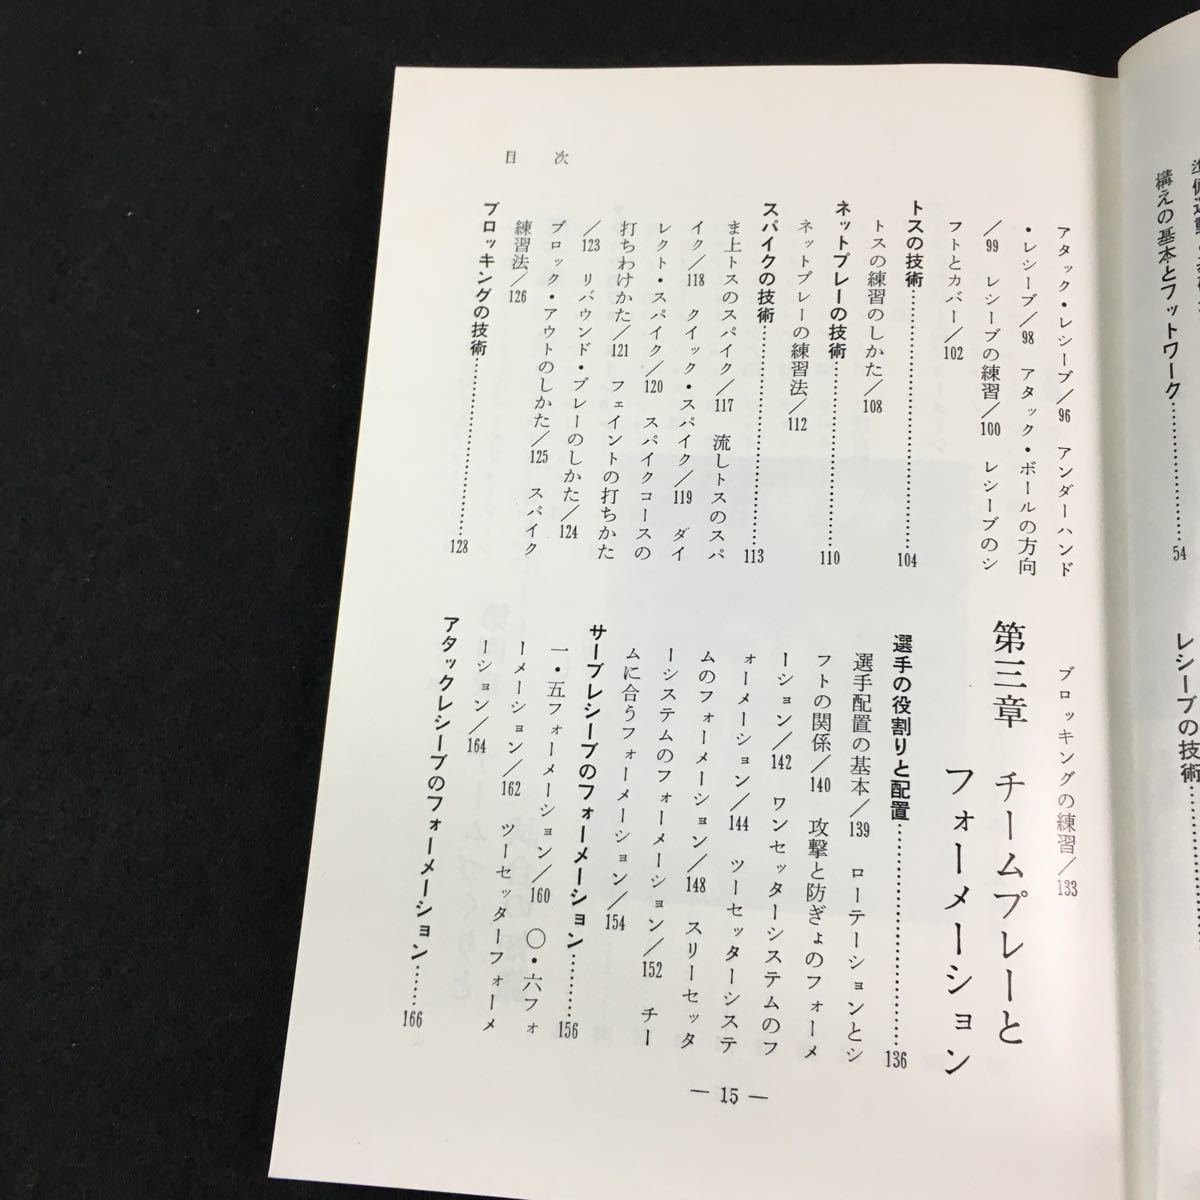 構えの基本とフットワーク……54
レシーブの技術……
目次
アタック・レシーブ/96 アンダーハンド
・レシーブ/98 アタック・ボールの方向
/99 レシーブの練習/100 レシーブのシ
フトとカバー/102
トスの技術……104
トスの練習のしかた/108
ネットプレーの技術……110
ネットプレーの練習法/112
スパイクの技術……113
ま上トスのスパイク/117 流しトスのスパ
イク/118 クイック・スパイク/119 ダイ
レクト・スパイク/120 スパイクコースの
打ちわけかた/121 フェイントの打ちかた
/123 リバウンド・プレーのしかた/124
ブロック・アウトのしかた/125 スパイク
練習法/126
ブロッキングの技術……128
ブロッキングの練習/133
第三章 チームプレーと
フォーメーション
選手の役割りと配置……136
選手配置の基本/139 ローテーションとシ
フトの関係/140 攻撃と防ぎょのフォーメ
ーション/142 ワンセッターシステムのフ
ォーメーション/144 ツーセッターシステ
ムのフォーメーション/148 スリーセッタ
ーシステムのフォーメーション/152 チー
ムに合うフォーメーション/154
サーブレシーブのフォーメーション……156
一・五フォーメーション/160 〇・六フォ
ーメーション/162 ツーセッターフォーメ
ーション/164
アタックレシーブのフォーメーション……166
— 15 —